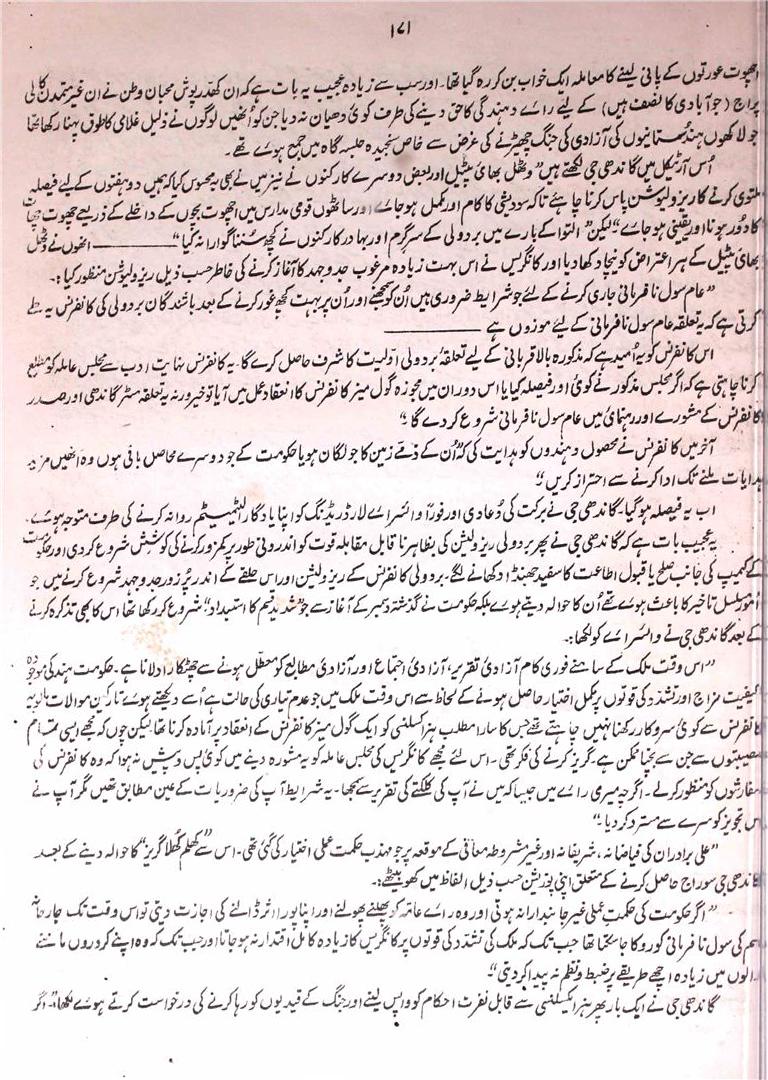 ۱۷۱
اچھوت عورتوں کے پانی لینے کا معاملہ ایک خواب بن کر رہ گیا تھا۔ اور سب سے زیادہ عجیب یہ بات ہے کہ ان کھدّر پوش محبان وطن نے ان غیر متمدن کالی
پراج (جو آبادی کا نصف ہیں) کے لیئے راے دہندگی کا حق دینے کی طرف کوئی دھیان نہ دیا جن کو اُنھیں لوگوں نے ذلیل غلامی کا طوق پہنا رکھا تھا
جو لاکھوں ہندُستانیوں کی آزادی کی جنگ چھیڑنے کی غرض سے خاص سنجیدہ جلسہ گاہ میں جمع ہوے تھے۔
اُس آرٹیکل میں گاندھی جی لکھتے ہیں "وِٹھل بھائی پٹیل اور بعض دوسرے کارکنوں نے نیز میں نے بھی یہ محسوس کیا کہ ہمیں دو ہفتوں کے لیئے فیصلہ
ملتوی کرنے کا ریزولیوشن پاس کرنا چاہئے تاکہ سودیشی کا کام اور مکمل ہو جاے اور ساٹھوں قومی مدارس میں اچھوت بچوں کے داخلے کے ذریعے چھوت چھات
کا دُور ہونا اور یقینی ہو جاے" لیکن "التوا کے بارے میں بردولی کے سرگرم اور بہادر کارکنوں نے کچھ سُننا گوارا نہ کیا" ——— انھوں نے وٹھل
بھائی پٹیل کے ہر اعتراض کو نیچا دکھا دیا اور کانگریس نے اس بہت زیادہ مرغوب جدوجہد کا آغاز کرنے کی خاطر حسب ذیل ریزولیوشن منظور کیا:۔
"عام سول نافرمانی جاری کرنے کے لئے جو شرایط ضروری ہیں اُن کو سمجھنے اور اُن پر بہت کچھ غور کرنے کے بعد باشندگان بردولی کی کانفرنس یہ طے
کرتی ہے کہ یہ تعلقہ عام سول نافرمانی کے لیئے موزوں ہے ———
اس کانفرنس کو یہ اُمید ہے کہ مذکورہ بالا قربانی کے لیے تعلقۂ بردولی اوّلیت کا شرف حاصل کرے گا۔ یہ کانفرنس نہایت ادب سے مجلس عاملہ کو مطلع
کرنا چاہتی ہے کہ اگر مجلس مذکور نے کوئی اور فیصلہ کیا یا اس دوران میں مجوزہ گول میز کانفرنس کا انعقاد عمل میں آیا تو خیر ورنہ یہ تعلقہ مسٹر گاندھی اور صدر
کانفرنس کے مشورے اور رہنمائی میں عام سول نافرمانی شروع کر دے گا۔"
آخر میں کانفرنس نے محصول دہندوں کو ہدایت کی کہ "اُن کے ذمّے زمین کا جو لگان ہو یا حکومت کے جو دوسرے محاصل باقی ہوں وہ انھیں مزید
ہدایات ملنے تک ادا کرنے سے احتراز کریں۔"
اب یہ فیصلہ ہو گیا۔ گاندھی جی نے برکت کی دُعا دی اور فوراً وائسراے لارڈ ریڈنگ کو اپنا یادگار الٹیمیٹم روانہ کرنے کی طرف متوجہ ہوے۔
یہ عجیب بات ہے کہ گاندھی جی نے پھر بردولی ریزولیشن کی بظاہر ناقابل مقابلہ قوت کو اندرونی طور پر کمزور کرنے کی کوشش شروع کر دی اور حکومت
کے کیمپ کی جانب صلح یا قبول اطاعت کا سفید جھنڈا دکھانے لگے۔ بردولی کانفرنس کے ریزولیشن اور اس حلقے کے اندر پُر زور جدوجہد شروع کرنے میں جو
اُمور مسلسل تاخیر کا باعث ہوے تھے اُن کا حوالہ دیتے ہوے بلکہ حکومت نے گذشتہ دسمبر کے آغاز سے جو "شدید قسم کا استبداد" شروع کر رکھا تھا اس کا بھی تذکرہ کرنے
کے بعد گاندھی جی نے وائسراے کو لکھا:۔
"اس وقت ملک کے سامنے فوری کام آزادئ تقریر، آزادئ اجتماع اور آزادئ مطابع کو معطل ہونے سے چھٹکارا دلانا ہے۔ حکومت ہند کی موجودہ
کیفیت مزاج اور تشدد کی قوتوں پر مکمل اختیار حاصل ہونے کے لحاظ سے اس وقت ملک میں جو عدم تیاری کی حالت ہے اُسے دیکھتے ہوے تارکین موالات مالویہ
کانفرنس سے کوئی سروکار رکھنا نہیں چاہتے تھے جس کا سارا مطلب ہز اکسلنسی کو ایک گول میز کانفرنس کے انعقاد پر آمادہ کرنا تھا لیکن چوں کہ مجھے ایسی تمام
مصیبتوں سے جن سے بچنا ممکن ہے۔ گریز کرنے کی فکر تھی۔ اس لئے مجھے کانگریس کی مجلس عاملہ کو یہ مشورہ دینے میں کوئی پس و پیش نہ ہوا کہ وہ کانفرنس کی
سفارشوں کو منظور کرلے۔ اگرچہ میری راے میں جیسا کہ میں نے آپ کی کلکتے کی تقریر سے سمجھا۔ یہ شرایط آپ کی ضروریات کے عین مطابق تھیں مگر آپ نے
اس تجویز کو سرے سے مسترد کر دیا۔"
"علی برادران کی فیاضانہ، شریفانہ اور غیر مشروط معافی کے موقعہ پر جو مہذب حکمت عملی اختیار کی گئی تھی۔ اس سے "کھلم کھلا گریز" کا حوالہ دینے کے بعد
گاندھی جی سوراج حاصل کرنے کے متعلق اپنی پوزیشن حسب ذیل الفاظ میں کھو بیٹھے:۔
"اگر حکومت کی حکمت عملی غیر جانبدارانہ ہوتی اور وہ راے عامہ کو پھلنے پھولنے اور اپنا پورا اثر ڈالنے کی اجازت دیتی تو اس وقت تک جارحانہ
قسم کی سول نافرمانی کو روکا جا سکتا تھا جب تک کہ ملک کی تشدد کی قوتوں پر کانگریس کا زیادہ کامل اقتدار نہ ہو جاتا اور جب تک کہ وہ اپنے کروروں ماننے
والوں میں زیادہ اچھے طریقے پر ضبط و نظم نہ پیدا کر دیتی"
گاندھی جی نے ایک بار پھر ہز ایکسلنسی سے قابل نفرت احکام کو واپس لینے اور جنگ کے قیدیوں کو رہا کرنے کی درخواست کرتے ہوے لکھا:۔ "اگر